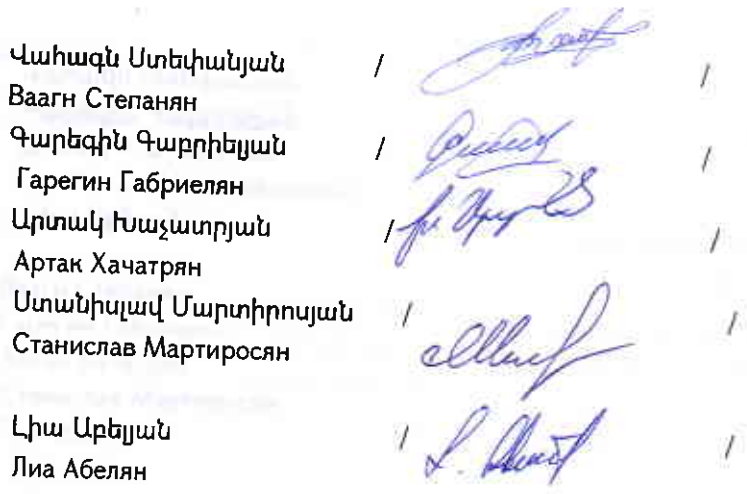 Վահագն Ստեփանյան / /
Ваагн Степанян
Գարեգին Գաբրիելյան / /
Гарегин Габриелян
Արտակ Խաչատրյան / /
Артак Хачатрян
Ստանիսլավ Մարտիրոսյան / /
Станислав Мартиросян
Լիա Աբելյան / /
Лиа Абелян